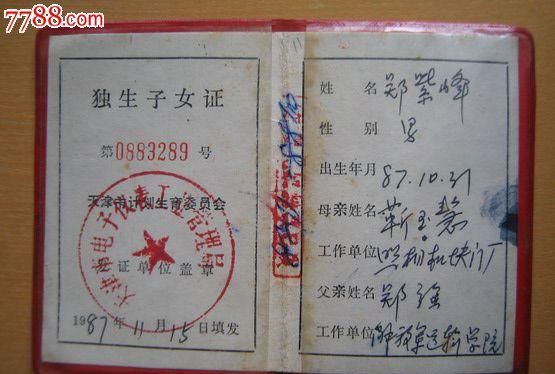 7788.com
独生子女证
第0883289号
天津市计划生育委员会
天津市电子仪表工业管理局
发证单位盖章
1987年11月15日填发
姓名 郑紫峰
性别 男
出生年月 87.10.31
母亲姓名 靳玉慧
工作单位 照相机快门厂
父亲姓名 郑强
工作单位 解放军运输学院